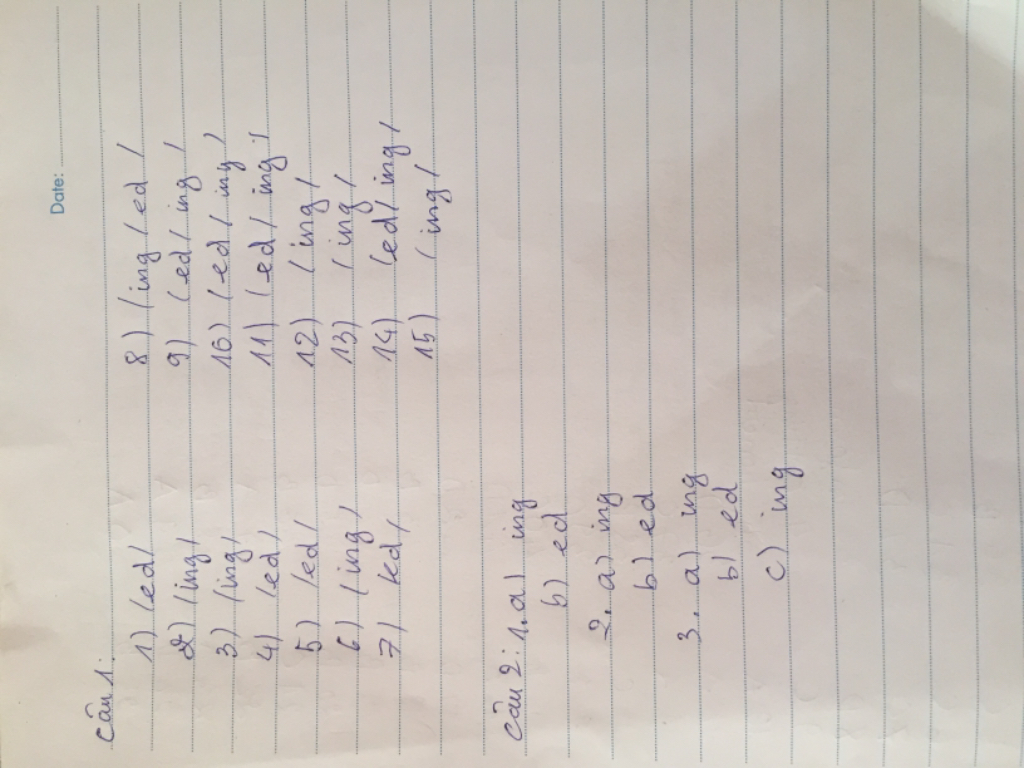 Date:
Câu 1:
1) /ed/
2) /ing/
3) /ing/
4) /ed/
5) /ed/
6) /ing/
7) /ed/
8) /ing/ed/
9) /ed/ing/
10) /ed/ing/
11) /ed/ing/
12) /ing/
13) /ing/
14) /ed/ing/
15) /ing/
Câu 2: 1. a) ing
b) ed
2. a) ing
b) ed
3. a) ing
b) ed
c) ing